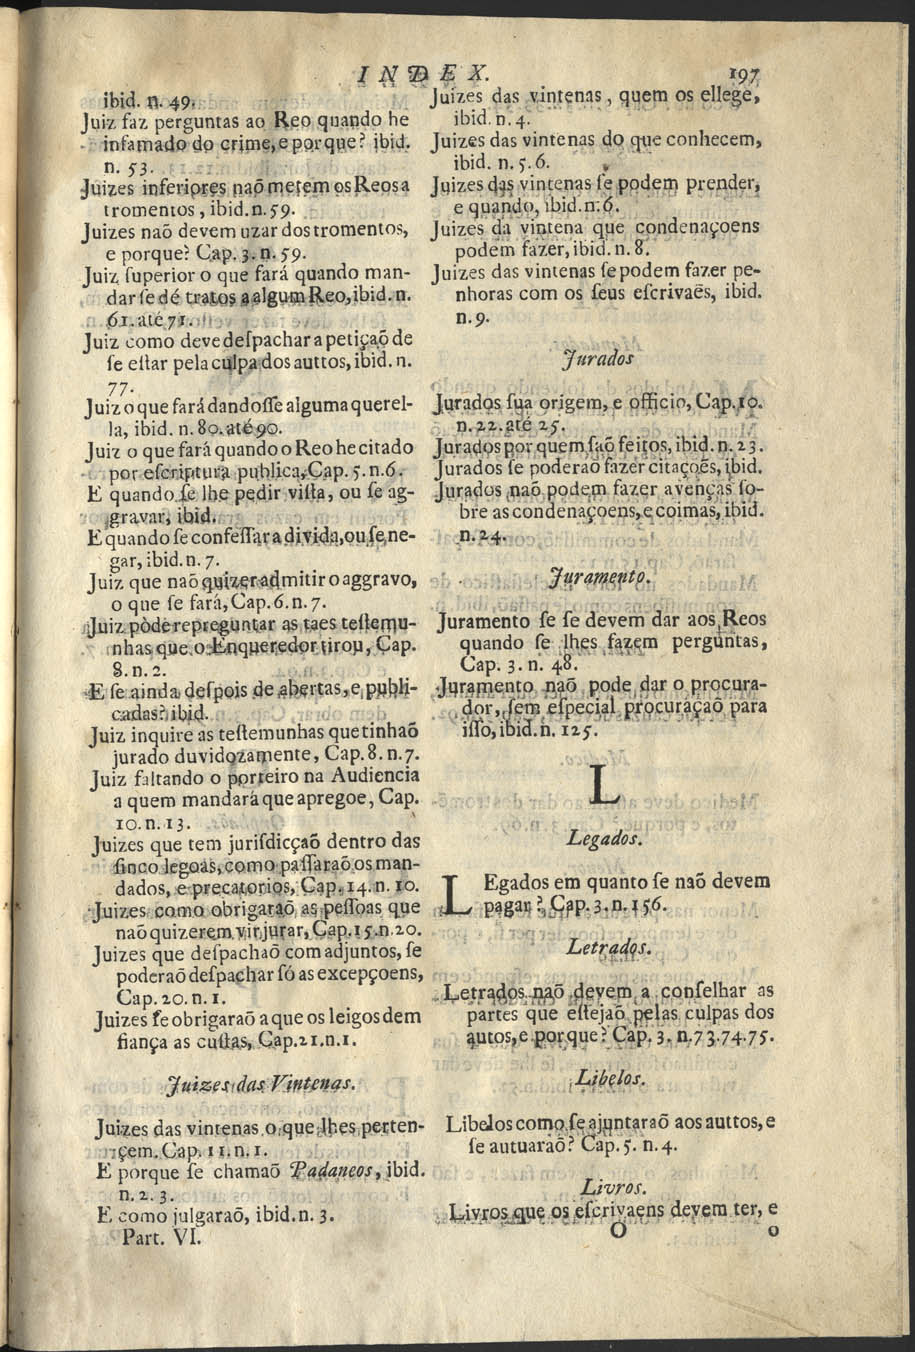 INDEX. 197
ibid. n. 49.
Juiz faz perguntas ao Reo quando he
infamado do crime, e porque? ibid.
n. 53.
Juizes inferiores naõ metem os Reos a
tromentos, ibid. n. 59.
Juizes naõ devem uzar dos tromentos,
e porque? Cap. 3. n. 59.
Juiz ſuperior o que fará quando man-
dar ſe dé tratos a algum Reo, ibid. n.
61. até 71.
Juiz como deve deſpachar a petiçaõ de
ſe eſtar pela culpa dos auttos, ibid. n.
77.
Juiz o que fará dandoſſe alguma querel-
la, ibid. n. 80. até 90.
Juiz o que fará quando o Reo he citado
por eſcriptura publica, Cap. 5. n. 6.
E quando ſe lhe pedir viſta, ou ſe ag-
gravar, ibid.
E quando ſe confeſſar a divida, ou ſe ne-
gar, ibid. n. 7.
Juiz que naõ quizer admitir o aggravo,
o que ſe fará, Cap. 6. n. 7.
Juiz póde repreguntar as taes teſtemu-
nhas que o Enqueredor tirou, Cap.
8. n. 2.
E ſe ainda deſpois de abertas, e publi-
cadas? ibid.
Juiz inquire as teſtemunhas que tinhaõ
jurado duvidozamente, Cap. 8. n. 7.
Juiz faltando o porteiro na Audiencia
a quem mandará que apregoe, Cap.
10. n. 13.
Juizes que tem juriſdicçaõ dentro das
ſinco legoas, como paſſaraõ os man-
dados, e precatorios, Cap. 14. n. 10.
Juizes como obrigaraõ as peſſoas que
naõ quizerem vir jurar, Cap. 15. n. 20.
Juizes que deſpachaõ com adjuntos, ſe
poderaõ deſpachar ſó as excepçoens,
Cap. 20. n. 1.
Juizes ſe obrigaraõ a que os leigos dem
fiança as cuſtas, Cap. 21. n. 1.
Juizes das Vintenas.
Juizes das vintenas o que lhes perten-
çem. Cap. 11. n. 1.
E porque ſe chamaõ Padaneos, ibid.
n. 2. 3.
E como julgaraõ, ibid. n. 3.
Part. VI.
Juizes das vintenas, quem os ellege,
ibid. n. 4.
Juizes das vintenas do que conhecem,
ibid. n. 5. 6.
Juizes das vintenas ſe podem prender,
e quando, ibid. n. 6.
Juizes da vintena que condenaçoens
podem fazer, ibid. n. 8.
Juizes das vintenas ſe podem fazer pe-
nhoras com os ſeus eſcrivaẽs, ibid.
n. 9.
Jurados
Jurados ſua origem, e officio, Cap. 10.
n. 22. até 25.
Jurados por quem ſaõ feitos, ibid. n. 23.
Jurados ſe poderaõ fazer citaçoẽs, ibid.
Jurados naõ podem fazer avenças ſo-
bre as condenaçoens, e coimas, ibid.
n. 24.
Juramento.
Juramento ſe ſe devem dar aos Reos
quando ſe lhes fazem perguntas,
Cap. 3. n. 48.
Juramento naõ pode dar o procura-
dor, ſem eſpecial procuraçaõ para
iſſo, ibid. n. 125.
L
Legados.
LEgados em quanto ſe naõ devem
pagar?, Cap. 3. n. 156.
Letrados.
Letrados naõ devem a conſelhar as
partes que eſtejaõ pelas culpas dos
autos, e porque? Cap. 3. n. 73. 74. 75.
Libelos.
Libelos como ſe ajuntaraõ aos auttos, e
ſe autuaraõ? Cap. 5. n. 4.
Livros.
Livros que os eſcrivaens devem ter, e
O o